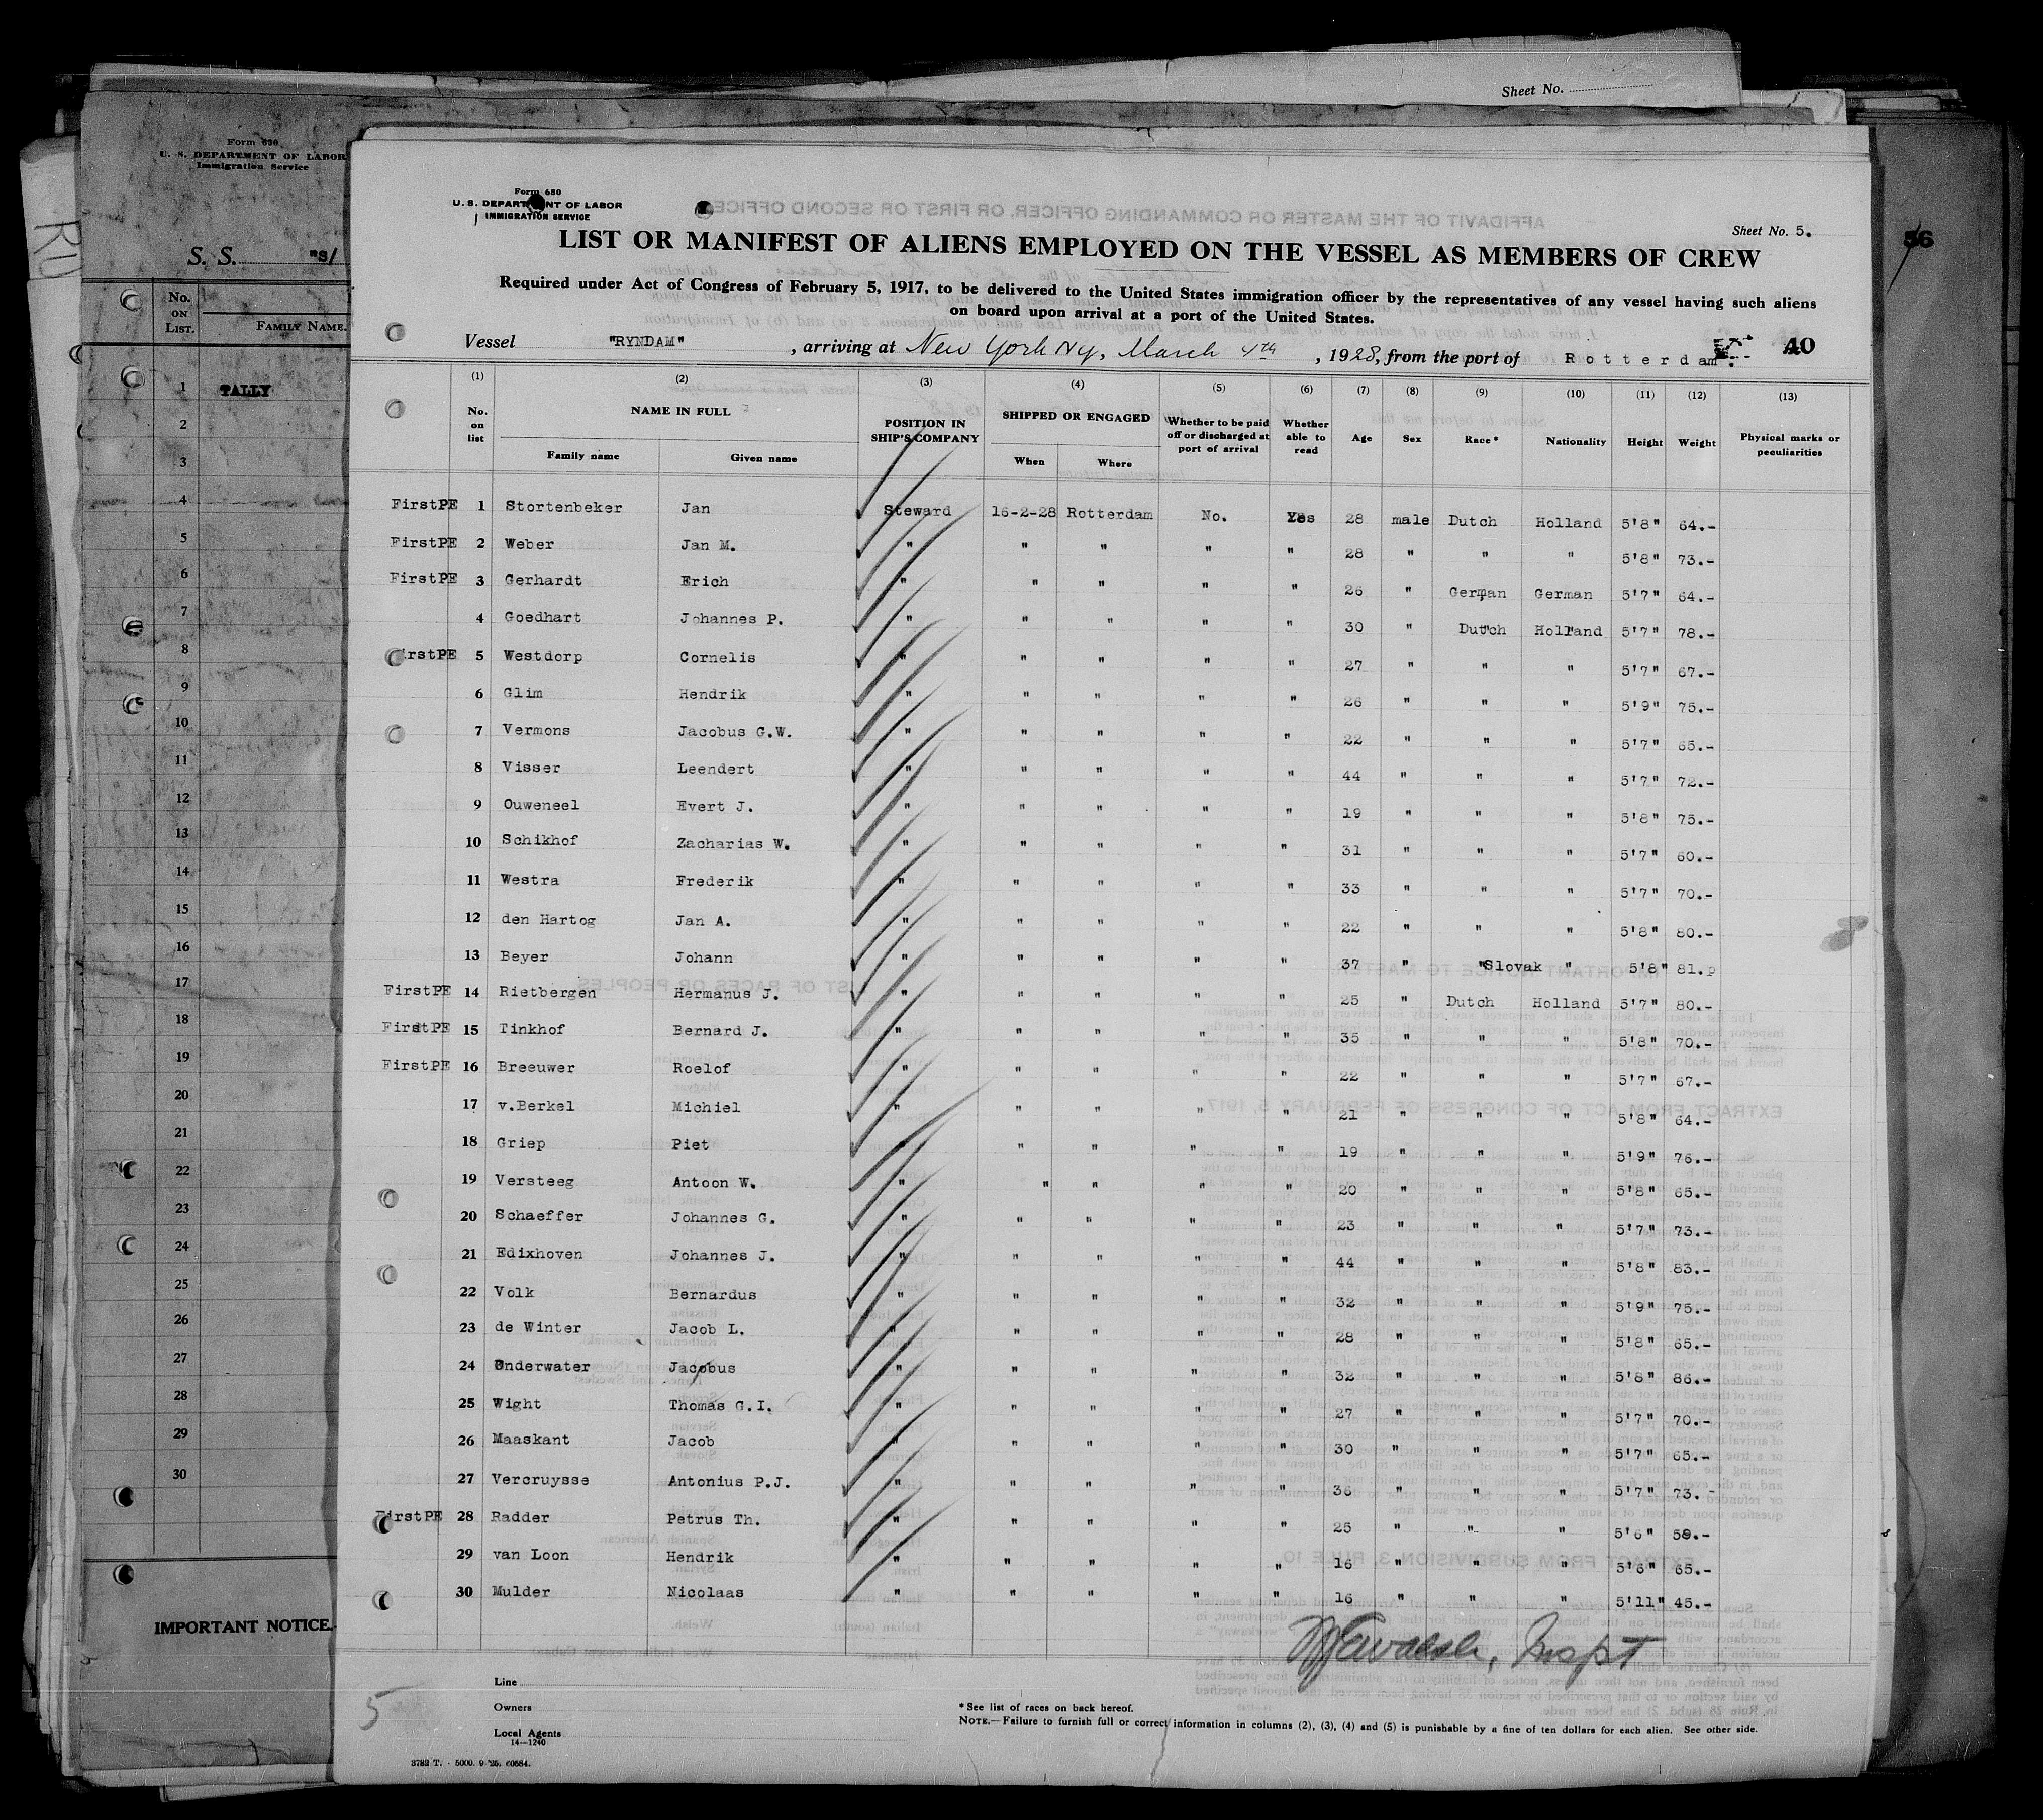 Sheet No.
Form 630
U. S. DEPARTMENT OF LABOR
Immigration Service
RU
S. S. "S/
No. ON LIST.
FAMILY NAME.
1 TALLY
2
3
4
5
6
7
8
9
10
11
12
13
14
15
16
17
18
19
20
21
22
23
24
25
26
27
28
29
30
IMPORTANT NOTICE.
56
Form 680
U. S. DEPARTMENT OF LABOR
IMMIGRATION SERVICE
Sheet No. 5.
LIST OR MANIFEST OF ALIENS EMPLOYED ON THE VESSEL AS MEMBERS OF CREW
Required under Act of Congress of February 5, 1917, to be delivered to the United States immigration officer by the representatives of any vessel having such aliens
on board upon arrival at a port of the United States.
Vessel "RYNDAM", arriving at New York NY, March 4th, 1928, from the port of Rotterdam. 40
(1) (2) (3) (4) (5) (6) (7) (8) (9) (10) (11) (12) (13)
No. on list NAME IN FULL Family name Given name POSITION IN SHIP'S COMPANY SHIPPED OR ENGAGED When Where Whether to be paid off or discharged at port of arrival Whether able to read Age Sex Race* Nationality Height Weight Physical marks or peculiarities
FirstPE 1 Stortenbeker Jan Steward 16-2-28 Rotterdam No. Yes 28 male Dutch Holland 5'8" 64.-
FirstPE 2 Weber Jan M. " " " " " 28 " " " 5'8" 73.-
FirstPE 3 Gerhardt Erich " " " " " 26 " German German 5'7" 64.-
4 Goedhart Johannes P. " " " " " 30 " Dutch Holland 5'7" 78.-
FirstPE 5 Westdorp Cornelis " " " " " 27 " " " 5'7" 67.-
6 Glim Hendrik " " " " " 26 " " " 5'9" 75.-
7 Vermons Jacobus G.W. " " " " " 22 " " " 5'7" 65.-
8 Visser Leendert " " " " " 44 " " " 5'7" 72.-
9 Ouweneel Evert J. " " " " " 19 " " " 5'8" 75.-
10 Schikhof Zacharias W. " " " " " 31 " " " 5'7" 60.-
11 Westra Frederik " " " " " 33 " " " 5'7" 70.-
12 den Hartog Jan A. " " " " " 22 " " " 5'8" 80.-
13 Beyer Johann " " " " " 37 " "Slovak " 5'8" 81.p
FirstPE 14 Rietbergen Hermanus J. " " " " " 25 " Dutch Holland 5'7" 80.-
FirstPE 15 Tinkhof Bernard J. " " " " " 35 " " " 5'8" 70.-
FirstPE 16 Breeuwer Roelof " " " " " 22 " " " 5'7" 67.-
17 v.Berkel Michiel " " " " " 21 " " " 5'8" 64.-
18 Griep Piet " " " " 19 " " " 5'9" 76.-
19 Versteeg Antoon W. " " " " " 20 " " " 5'8" 65.-
20 Schaeffer Johannes G. " " " " " 23 " " " 5'7" 73.-
21 Edixhoven Johannes J. " " " " " 44 " " " 5'8" 83.-
22 Volk Bernardus " " " " " 32 " " " 5'9" 75.-
23 de Winter Jacob L. " " " " " 28 " " " 5'8" 65.-
24 Onderwater Jacobus " " " " " 32 " " " 5'8" 86.-
25 Wight Thomas G.I. " " " " " 27 " " " 5'7" 70.-
26 Maaskant Jacob " " " " " 30 " " " 5'7" 65.-
27 Vercruysse Antonius P.J. " " " " " 36 " " " 5'7" 73.-
FirstPE 28 Radder Petrus Th. " " " " " 25 " " " 5'6" 59.-
29 van Loon Hendrik " " " " " 16 " " " 5'6" 65.-
30 Mulder Nicolaas " " " " " 16 " " " 5'11" 45.-
Inspt
Line
Owners
Local Agents
14—1240
5
* See list of races on back hereof.
NOTE.—Failure to furnish full or correct information in columns (2), (3), (4) and (5) is punishable by a fine of ten dollars for each alien. See other side.
3782 T. - 5000. 9 '26. 60684.